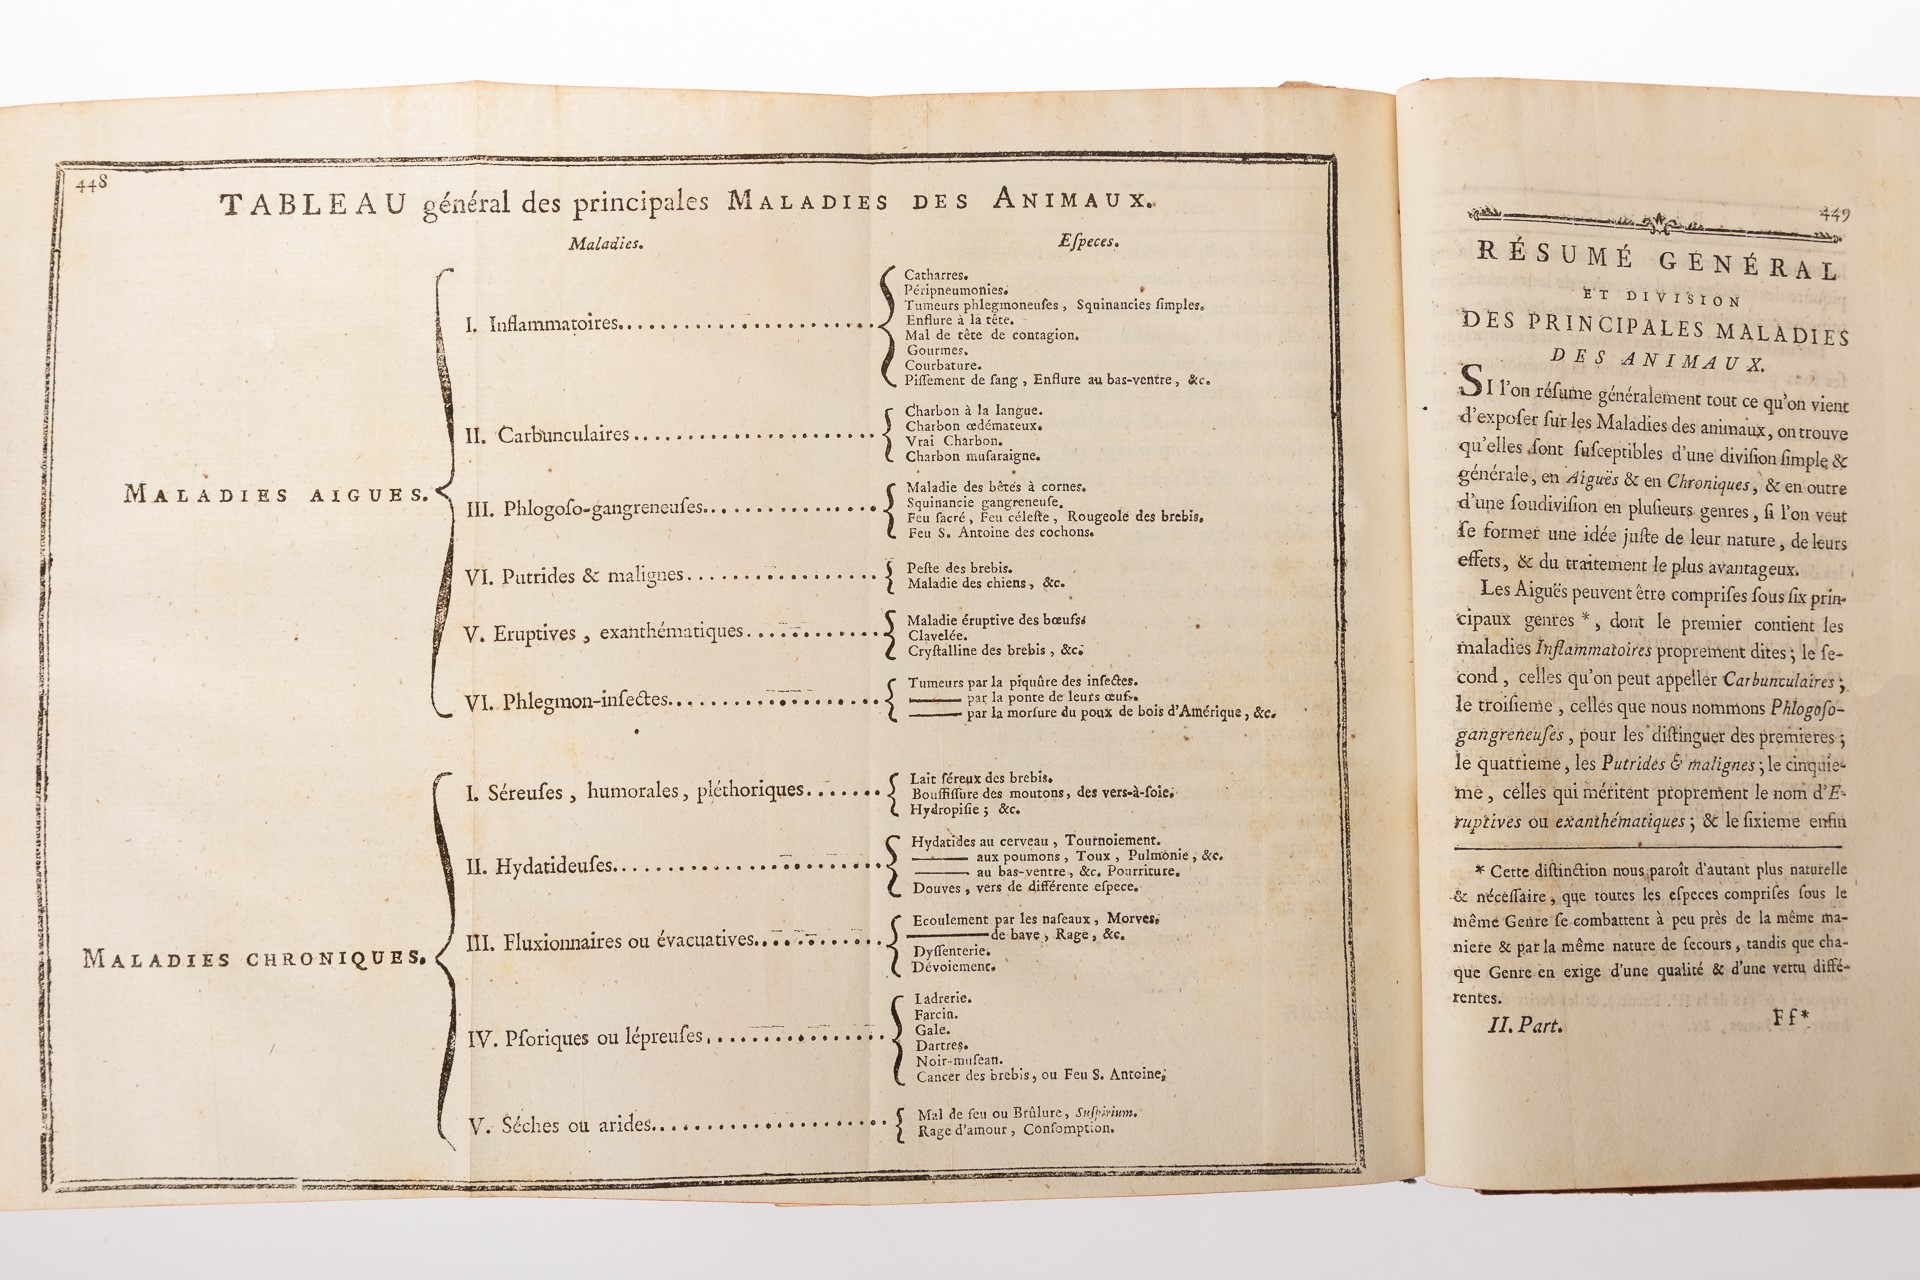 448
TABLEAU général des principales MALADIES DES ANIMAUX.
Maladies. Eſpeces.
MALADIES AIGUES.
I. Inflammatoires.
Catharres.
Péripneumonies.
Tumeurs phlegmoneuſes, Squinancies ſimples.
Enflure à la tête.
Mal de tête de contagion.
Gourmes.
Courbature.
Piſſement de ſang, Enflure au bas-ventre, &c.
II. Carbunculaires
Charbon à la langue.
Charbon œdémateux.
Vrai Charbon.
Charbon muſaraigne.
III. Phlogoſo-gangreneuſes.
Maladie des bêtes à cornes.
Squinancie gangreneuſe.
Feu ſacré, Feu céleſte, Rougeole des brebis.
Feu S. Antoine des cochons.
VI. Putrides & malignes
Peſte des brebis.
Maladie des chiens, &c.
V. Eruptives, exanthématiques
Maladie éruptive des bœufs.
Clavelée.
Cryſtalline des brebis, &c.
VI. Phlegmon-inſectes.
Tumeurs par la piquûre des inſectes.
—— par la ponte de leurs œufs.
—— par la morſure du poux de bois d'Amérique, &c.
MALADIES CHRONIQUES.
I. Séreuſes, humorales, pléthoriques
Lait ſéreux des brebis.
Bouffiſſure des moutons, des vers-à-ſoie.
Hydropiſie; &c.
II. Hydatideuſes.
Hydatides au cerveau, Tournoiement.
—— aux poumons, Toux, Pulmonie, &c.
—— au bas-ventre, &c. Pourriture.
Douves, vers de différente eſpece.
III. Fluxionnaires ou évacuatives.
Ecoulement par les naſeaux, Morves.
—— de bave, Rage, &c.
Dyſſenterie.
Dévoiement.
IV. Pſoriques ou lépreuſes
Ladrerie.
Farcin.
Gale.
Dartres.
Noir-muſeau.
Cancer des brebis, ou Feu S. Antoine,
V. Séches ou arides.
Mal de feu ou Brûlure, Suſpirium.
Rage d'amour, Conſomption.
449
RÉSUMÉ GÉNÉRAL
ET DIVISION
DES PRINCIPALES MALADIES
DES ANIMAUX.
SI l'on réſume généralement tout ce qu'on vient
d'expoſer ſur les Maladies des animaux, on trouve
qu'elles ſont ſuſceptibles d'une diviſion ſimple &
générale, en Aiguës & en Chroniques, & en outre
d'une ſoudiviſion en pluſieurs genres, ſi l'on veut
ſe former une idée juſte de leur nature, de leurs
effets, & du traitement le plus avantageux.
Les Aiguës peuvent être compriſes ſous ſix prin-
cipaux genres *, dont le premier contient les
maladies Inflammatoires proprement dites; le ſe-
cond, celles qu'on peut appeller Carbunculaires;
le troiſieme, celles que nous nommons Phlogoſo-
gangreneuſes, pour les diſtinguer des premieres;
le quatrieme, les Putrides & malignes; le cinquie-
me, celles qui méritent proprement le nom d'E-
ruptives ou exanthématiques; & le ſixieme enfin
* Cette diſtinction nous paroît d'autant plus naturelle
& néceſſaire, que toutes les eſpeces compriſes ſous le
même Genre ſe combattent à peu près de la même ma-
niere & par la même nature de ſecours, tandis que cha-
que Genre en exige d'une qualité & d'une vertu diffé-
rentes.
II. Part. Ff*